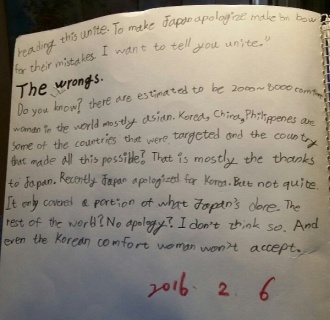 heading this unite. To make Japan apologize make bn bow
for their mistakes. I want to tell you unite."
The wrongs.
Do you know? there are estimated to be 2000~8000 comfort
woman in the world mostly asian. Korea, China, Philippenes are
some of the countries that were targeted and the country
that made all this possible? That is mostly the thanks
to Japan. Recently Japan apologized for Korea. But not quite.
It only covered a portion of what Japan's done. The
rest of the world? No apology? I don't think so. And
even the Korean comfort woman won't accept.
2016. 2. 6